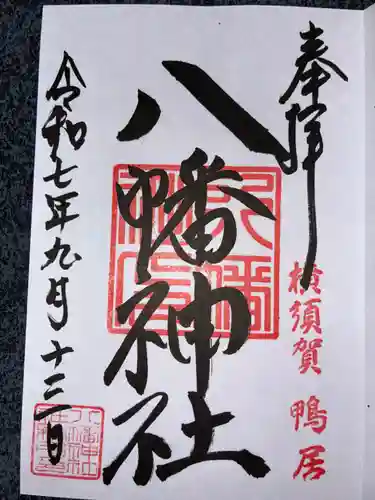 奉拝
横須賀 鴨居
八幡神社
令和七年九月十三日